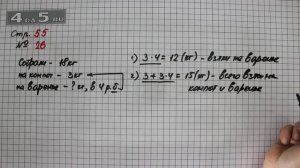 4 а 5 .ru
Стр. 55
№ 26
Собрали - 18кг
на компот - 3кг
на варенье - ? кг, в 4 р.б.
1) 3·4 = 12(кг) - взяли на варенье
2) 3 + 3·4 = 15(кг) - всего взяли на
компот и варенье